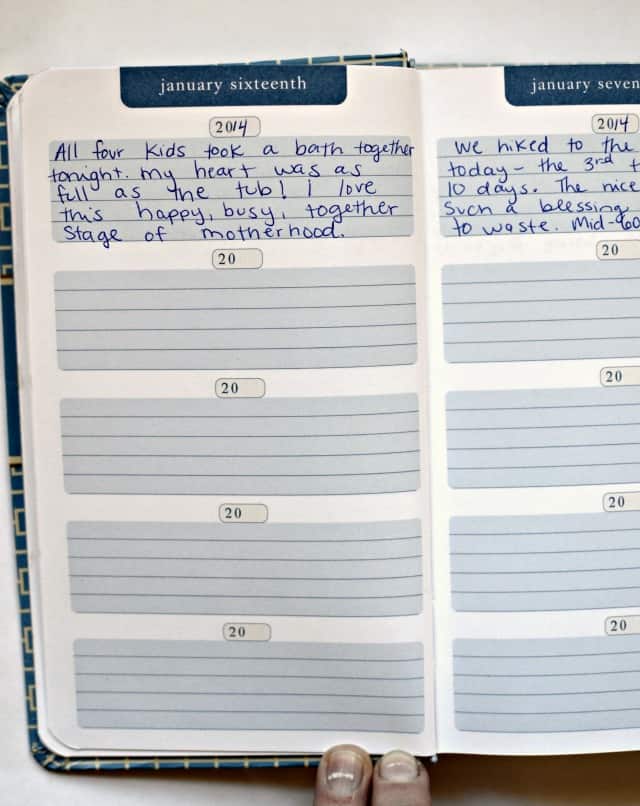 january sixteenth
2014
All four kids took a bath together
tonight. my heart was as
full as the tub! I love
this happy, busy, together
stage of motherhood.
20
20
20
20
january seven
2014
We hiked to the
today- the 3rd
10 days. The nice
Such a blessing
to waste. Mid-60
20
20
20
20